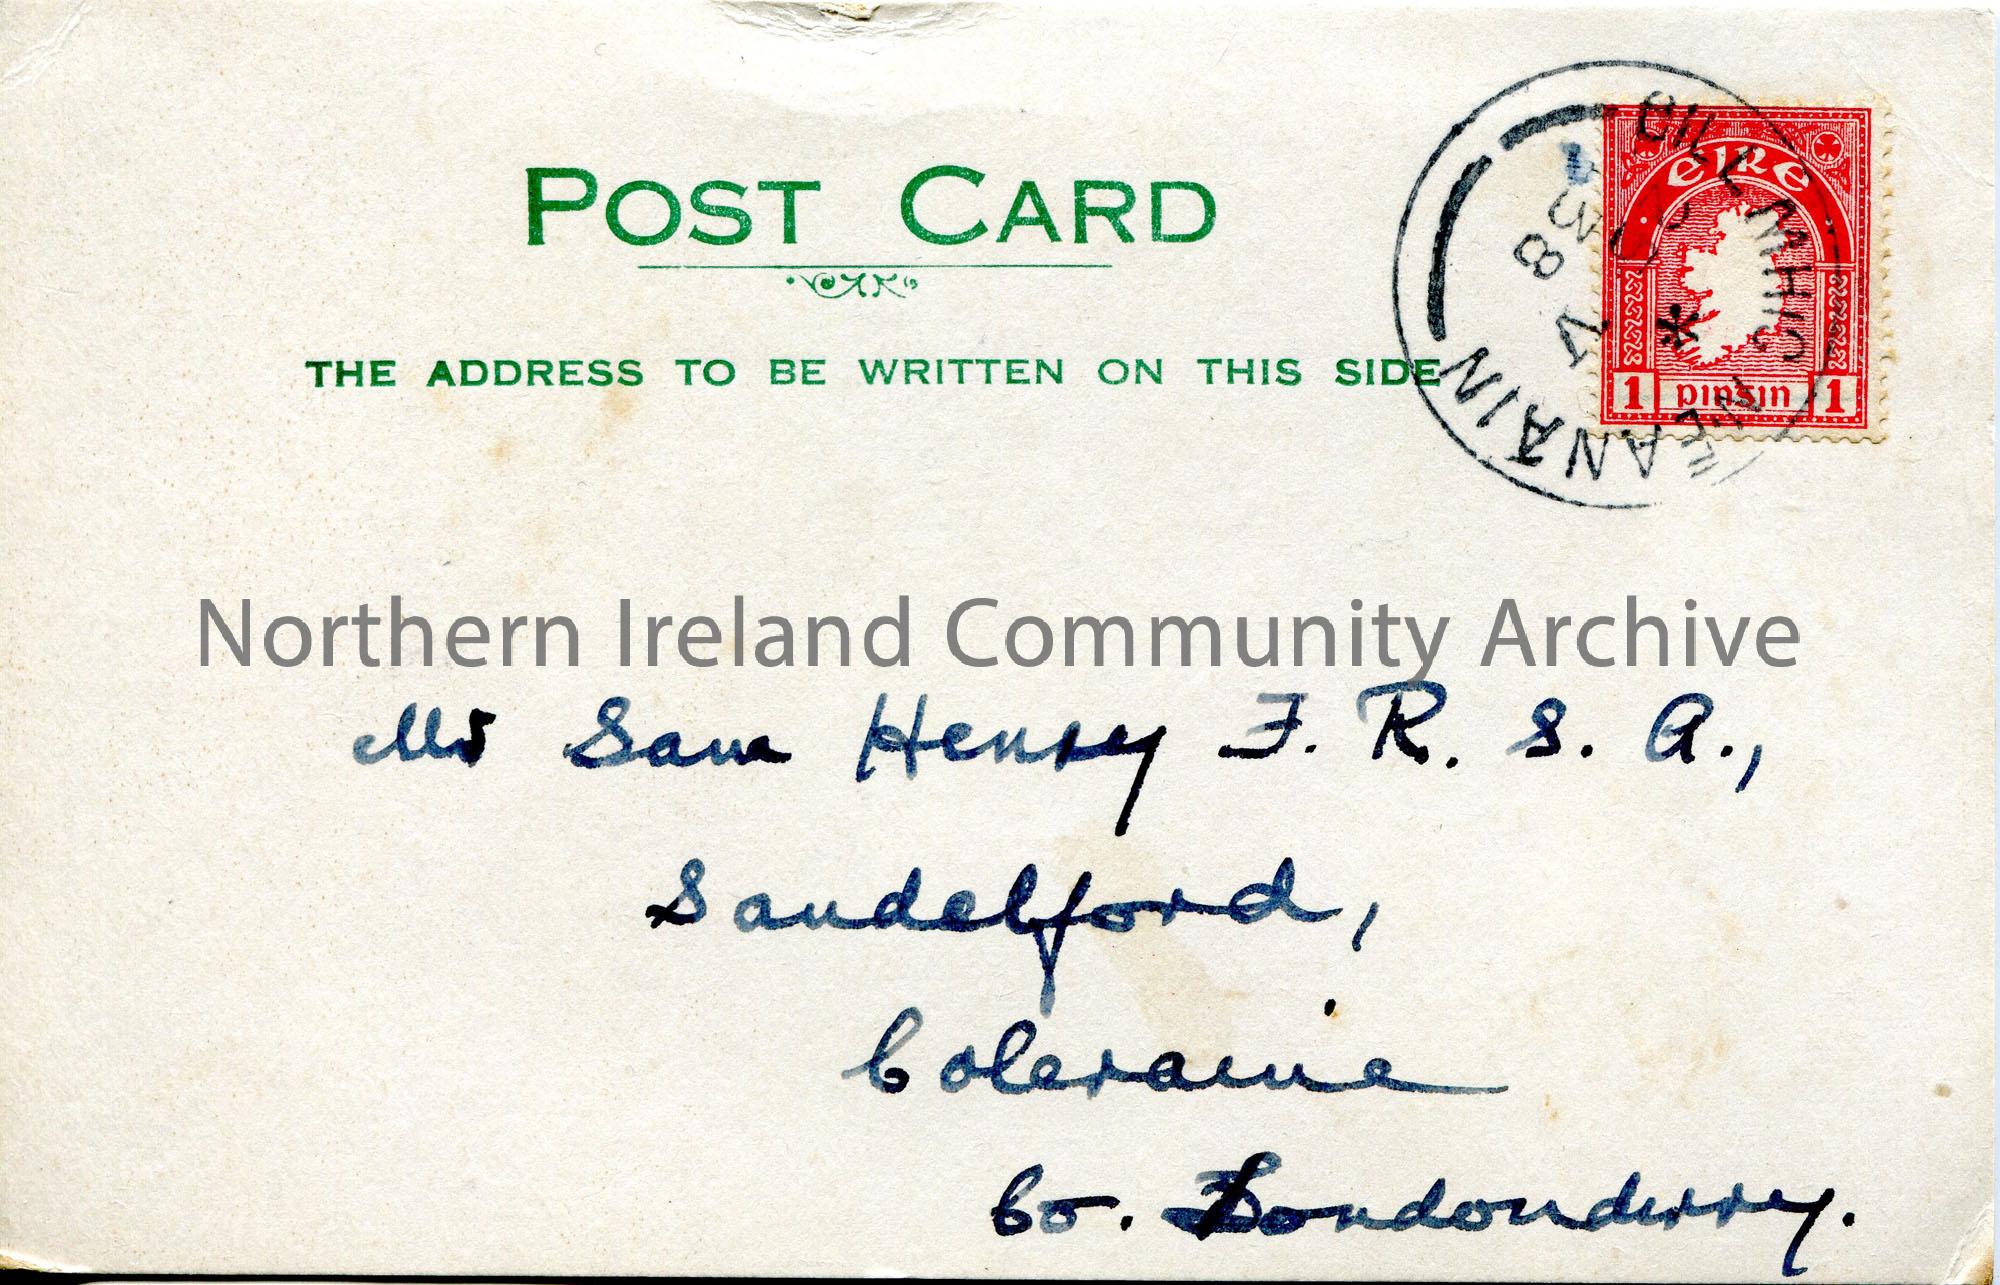 POST CARD
THE ADDRESS TO BE WRITTEN ON THIS SIDE
CILL MHIC
NEANÁIN
8 7
ÉIRE
1 PINGIN 1
Northern Ireland Community Archive
Mr Sam Henry F. R. S. A.,
Sandelford,
Coleraine
Co. Londonderry.